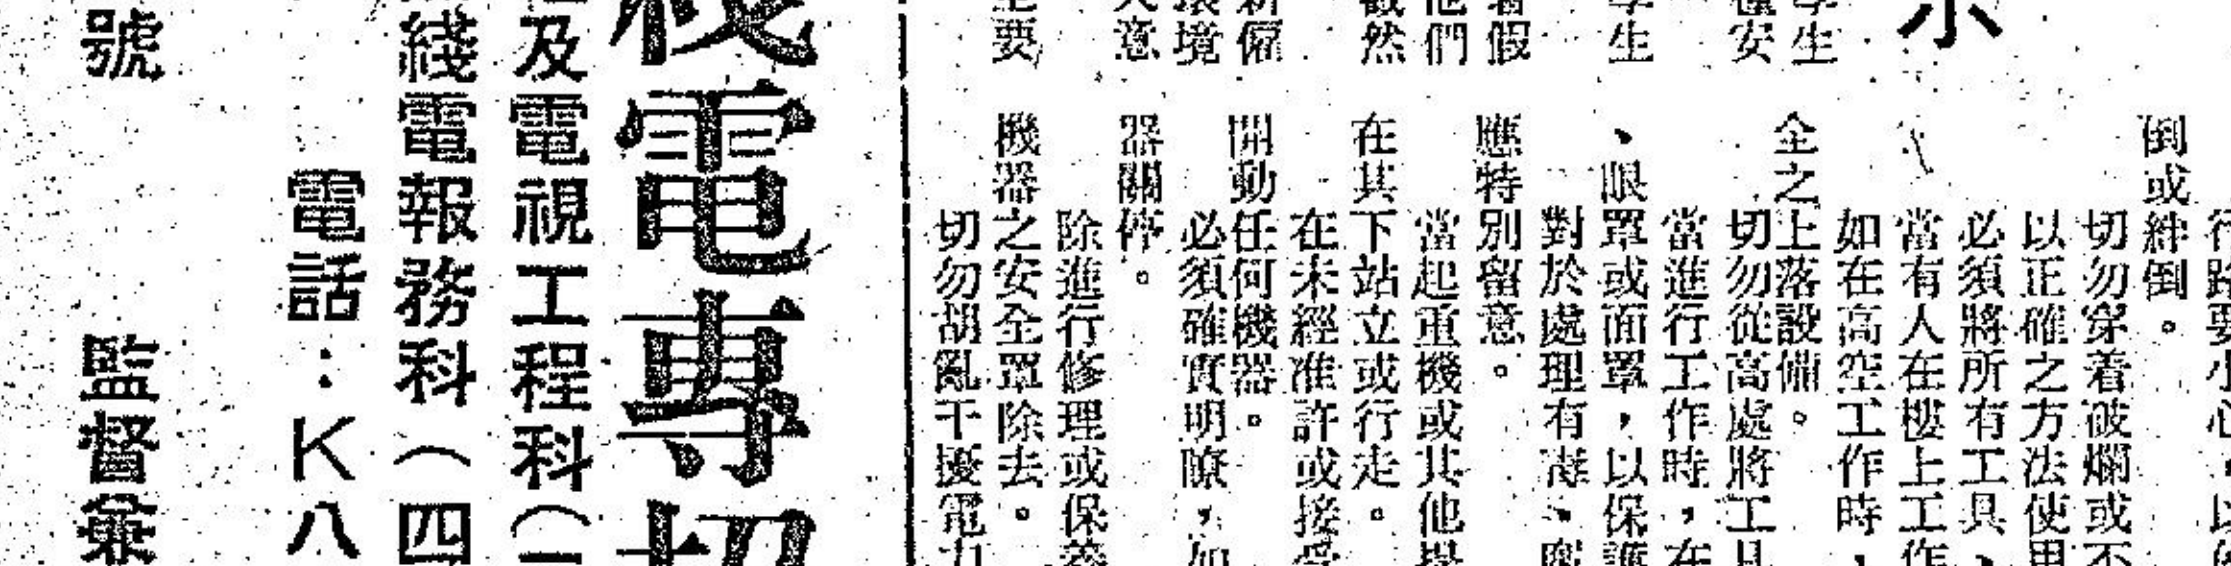 生
安
生
假
們
然
僱
境
意
要
行路要小心，以
倒或絆倒。
切勿穿着破爛或不
以正確之方法使用
必須將所有工具、
當有人在樓上工作
如在高空工作時，
全之上落設備。
切勿從高處將工具
當進行工作時，在
、眼罩或面罩，以保護
對於處理有毒、腐
應特別留意。
當起重機或其他提
在其下站立或行走。
在未經准許或接受
開動任何機器。
必須確實明瞭，如
器關停。
除進行修理或保養
機器之安全罩除去。
切勿胡亂干擾電力
電專
及電視工程科（
綫電報務科（四
電話：K八
號 監督兼